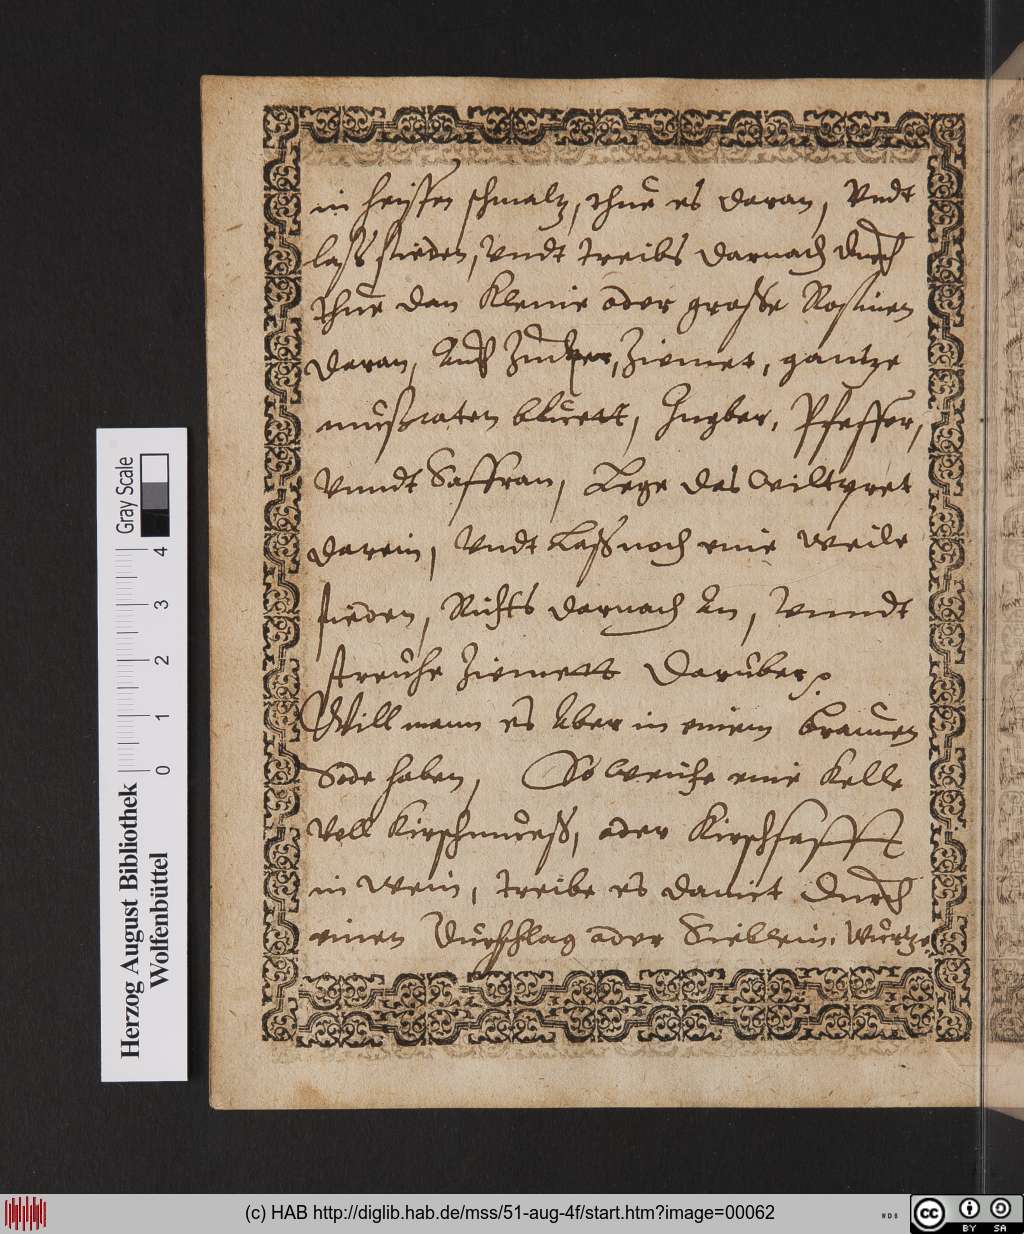 in heissen schmaltz, thue es daran, Vndt
lass sieden, Vndt treibs darnach durch
thue dan kleine oder grosse Rosinen
daran, Auch Zucker, Zimmet, gantze
muscaten bluett, Ingber, Pfeffer,
Vnndt Saffran, Lege das wiltpret
darein, Vndt Lass noch eine weile
sieden, Richts darnach An, Vnndt
streuhe Zimmett Darüber
Will mann es Aber in einem braunen
Sode haben, So weiche eine kelle
voll kirschmuess, oder Kirschsafft
in wein, treibe es damit Durch
einen Durchschlag oder Sieblein, Würtze
Gray Scale
4
3
2
1
0
Herzog August Bibliothek
Wolfenbüttel
(c) HAB http://diglib.hab.de/mss/51-aug-4f/start.htm?image=00062
WDB
cc BY SA